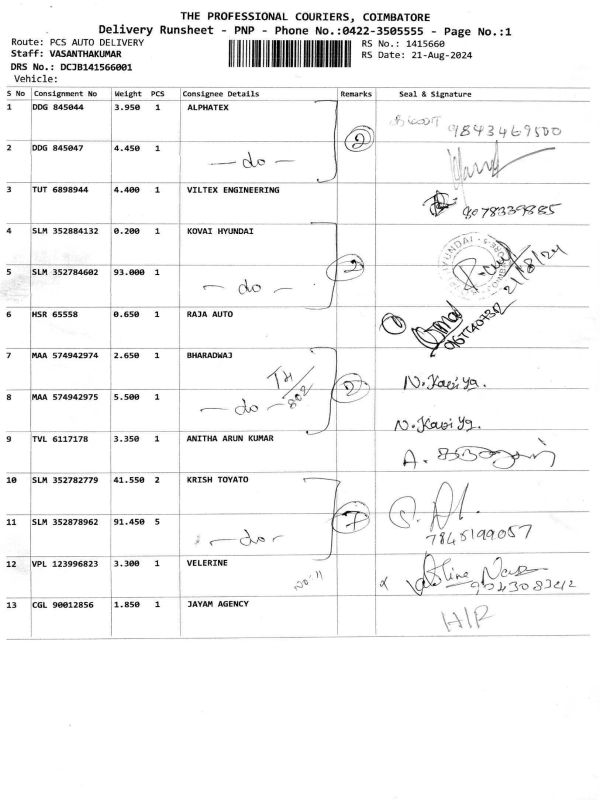 THE PROFESSIONAL COURIERS, COIMBATORE
Delivery Runsheet - PNP - Phone No.:0422-3505555 - Page No.:1
Route: PCS AUTO DELIVERY
RS No.: 1415660
Staff: VASANTHAKUMAR
RS Date: 21-Aug-2024
DRS No.: DCJB141566001
Vehicle:
S No Consignment No Weight PCS Consignee Details Remarks Seal & Signature
1 DDG 845044 3.950 1 ALPHATEX 9843469500
2
2 DDG 845047 4.450 1
- do -
3 TUT 6898944 4.400 1 VILTEX ENGINEERING
8078339885
4 SLM 352884132 0.200 1 KOVAI HYUNDAI
2
5 SLM 352784602 93.000 1
- do -
21/8/24
6 HSR 65558 0.650 1 RAJA AUTO
1
7 MAA 574942974 2.650 1 BHARADWAJ
2
N. Kaviya.
8 MAA 574942975 5.500 1
- do -
N. Kaviya.
9 TVL 6117178 3.350 1 ANITHA ARUN KUMAR
A.
10 SLM 352782779 41.550 2 KRISH TOYATO
7
11 SLM 352878962 91.450 5
- do -
7845199057
12 VPL 123996823 3.300 1 VELERINE
13 CGL 90012856 1.850 1 JAYAM AGENCY
H/R